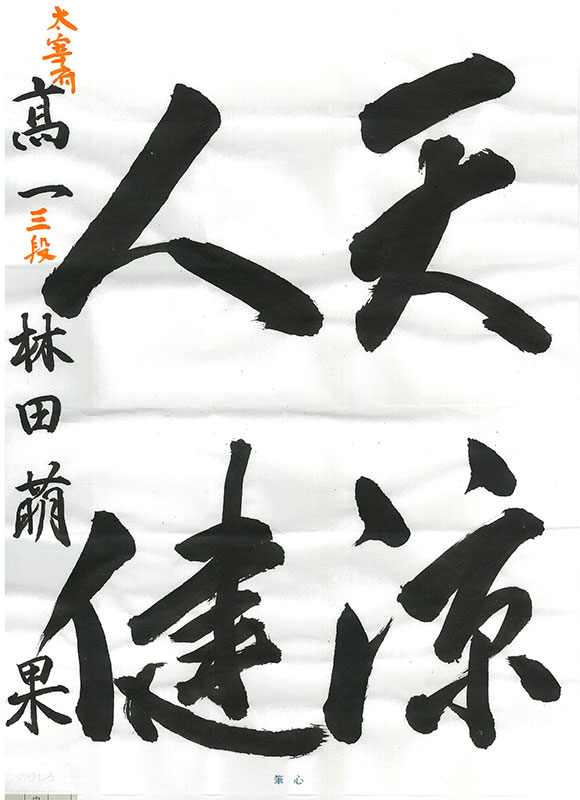 天涼
人健
太宰府
髙一 三段 林田萌果
筆心